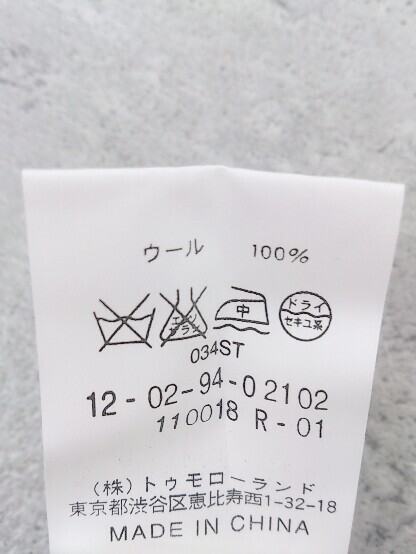 ウール 100%
エンソ サラシ 中 ドライ セキユ系
034ST
12-02-94-02102
110018 R-01
(株)トゥモローランド
東京都渋谷区恵比寿西1-32-18
MADE IN CHINA